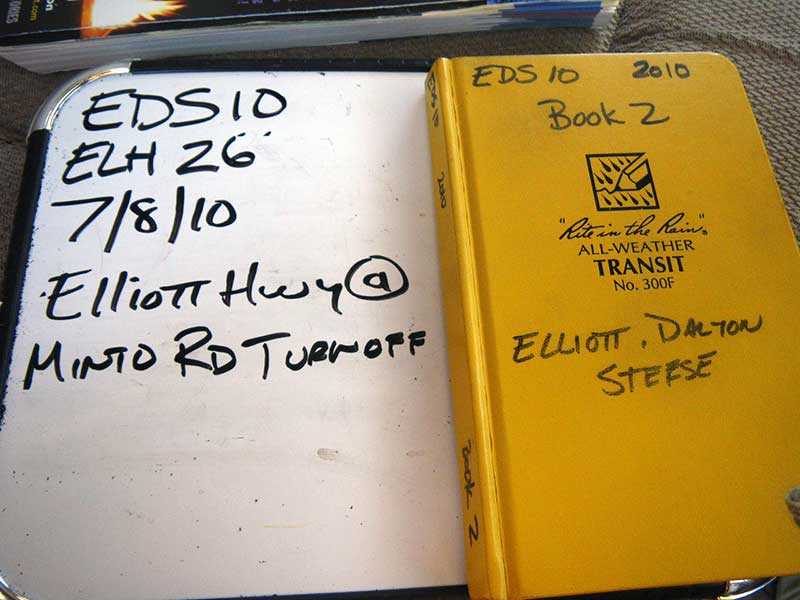 EDS10
ELH 26
7/8/10
Elliott Hwy @
MINTO RD TURNOFF
EDS 10 2010
Book 2
"Rite in the Rain"®
ALL-WEATHER
TRANSIT
No. 300F
ELLIOTT, DALTON
STEESE
EDS 10
2010
BOOK 2